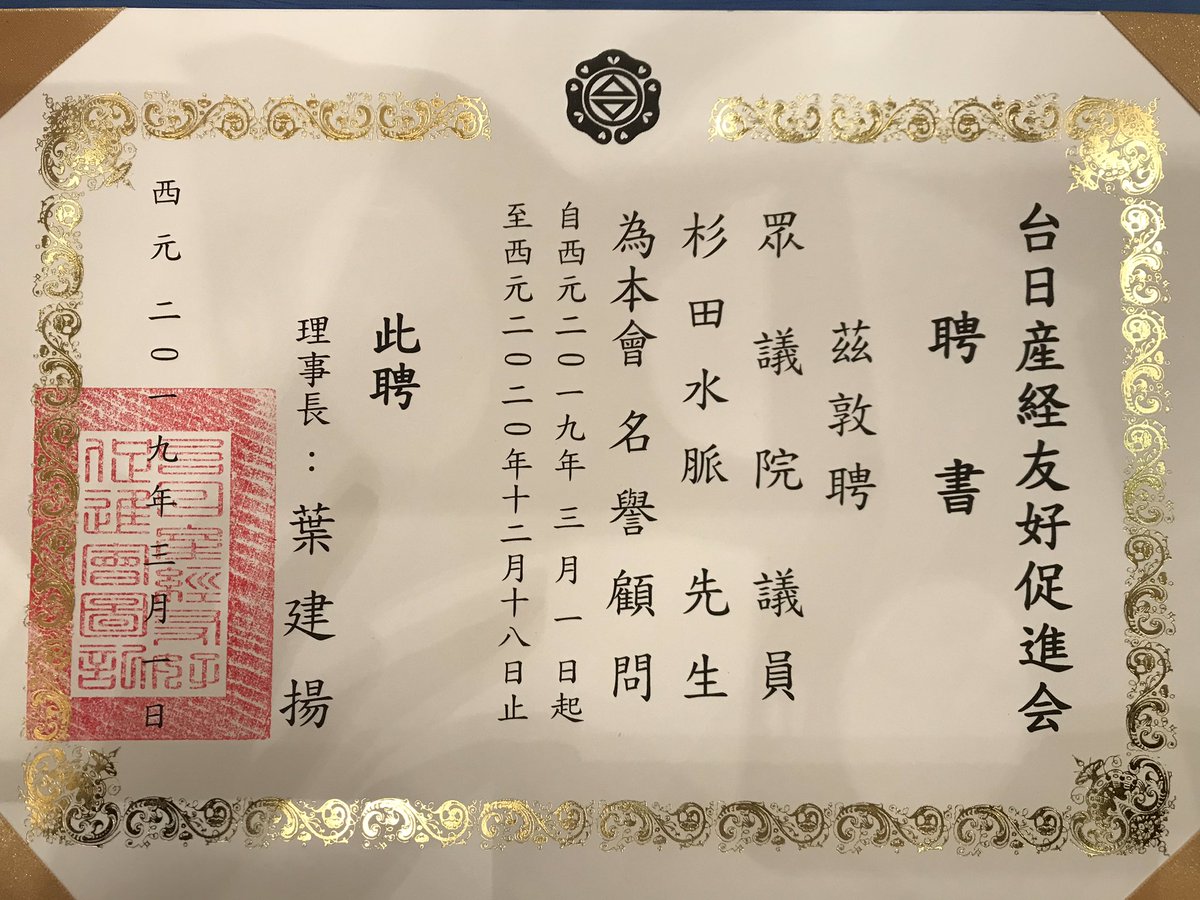 台日産経友好促進会
聘書
茲敦聘
眾議院議員
杉田水脈先生
為本會名譽顧問
自西元二〇一九年三月一日起
至西元二〇二〇年十二月十八日止
此聘
理事長：葉建揚
西元二〇一九年三月一日